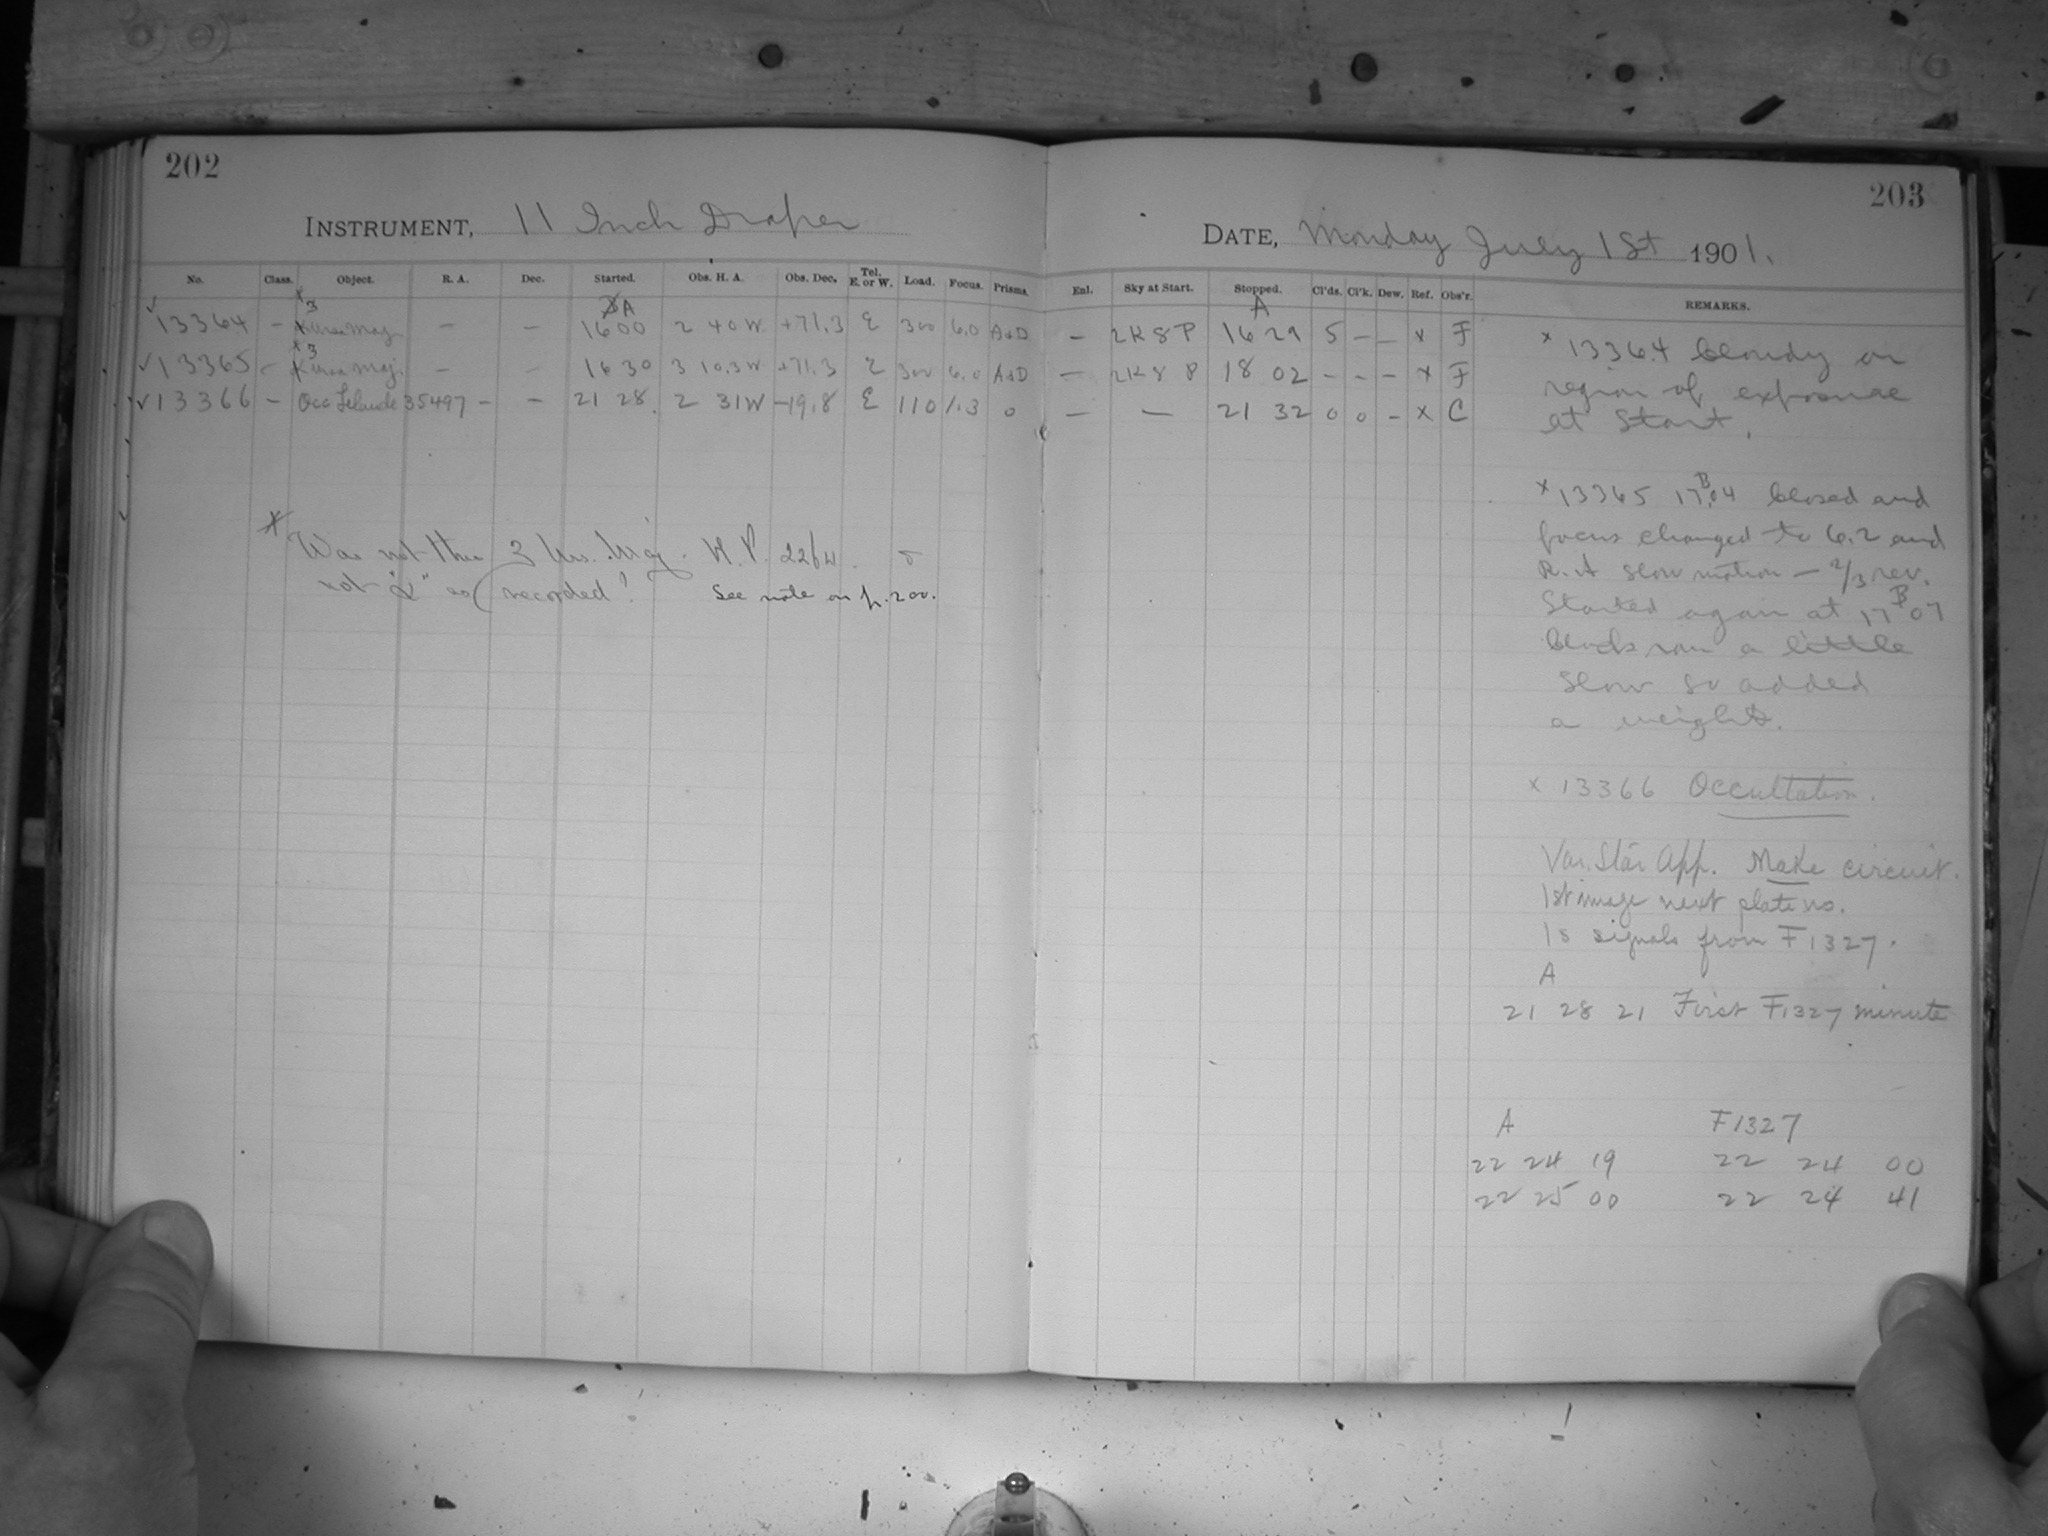 202
INSTRUMENT, 11 Inch Draper
No. Class. Object. R. A. Dec. Started. Obs. H. A. Obs. Dec. Tel. E. or W. Load. Focus. Prisms.
A
✓13364 – x 3 Ursa Maj. – – 16 00 2 40 W +71.3 E 300 6.0 A&D
✓13365 – x 3 Ursa Maj. – – 16 30 3 10.3 W +71.3 E 300 6.0 A&D
✓13366 – Occ Lelande 35497 – – 21 28. 2 31 W –19.8 E 110 1.3 0
x Was not this 3 Urs. Maj. H. P. 2264
not "α" as recorded? See note on p. 200.
203
DATE, Monday July 1st 1901.
Enl. Sky at Start. Stopped. Cl'ds. Cl'k. Dew. Ref. Obs'r. REMARKS.
A
– 2K8P 16 29 5 – – x F
– 2K8 P 18 02 – – – x F
– – 21 32 0 0 – x C
x 13364 Cloudy on
region of exposure
at Start.
x 13365 17 B 04 Closed and
focus changed to 6.2 and
R. A slow motion – 2/3 rev.
Started again at 17 B 07
Clock ran a little
slow so added
a weight.
x 13366 Occultation.
Var. Star App. Make circuit.
1st image next plate no.
1s signals from F1327.
A
21 28 21 First F1327 minute
A F1327
22 24 19 22 24 00
22 25 00 22 24 41